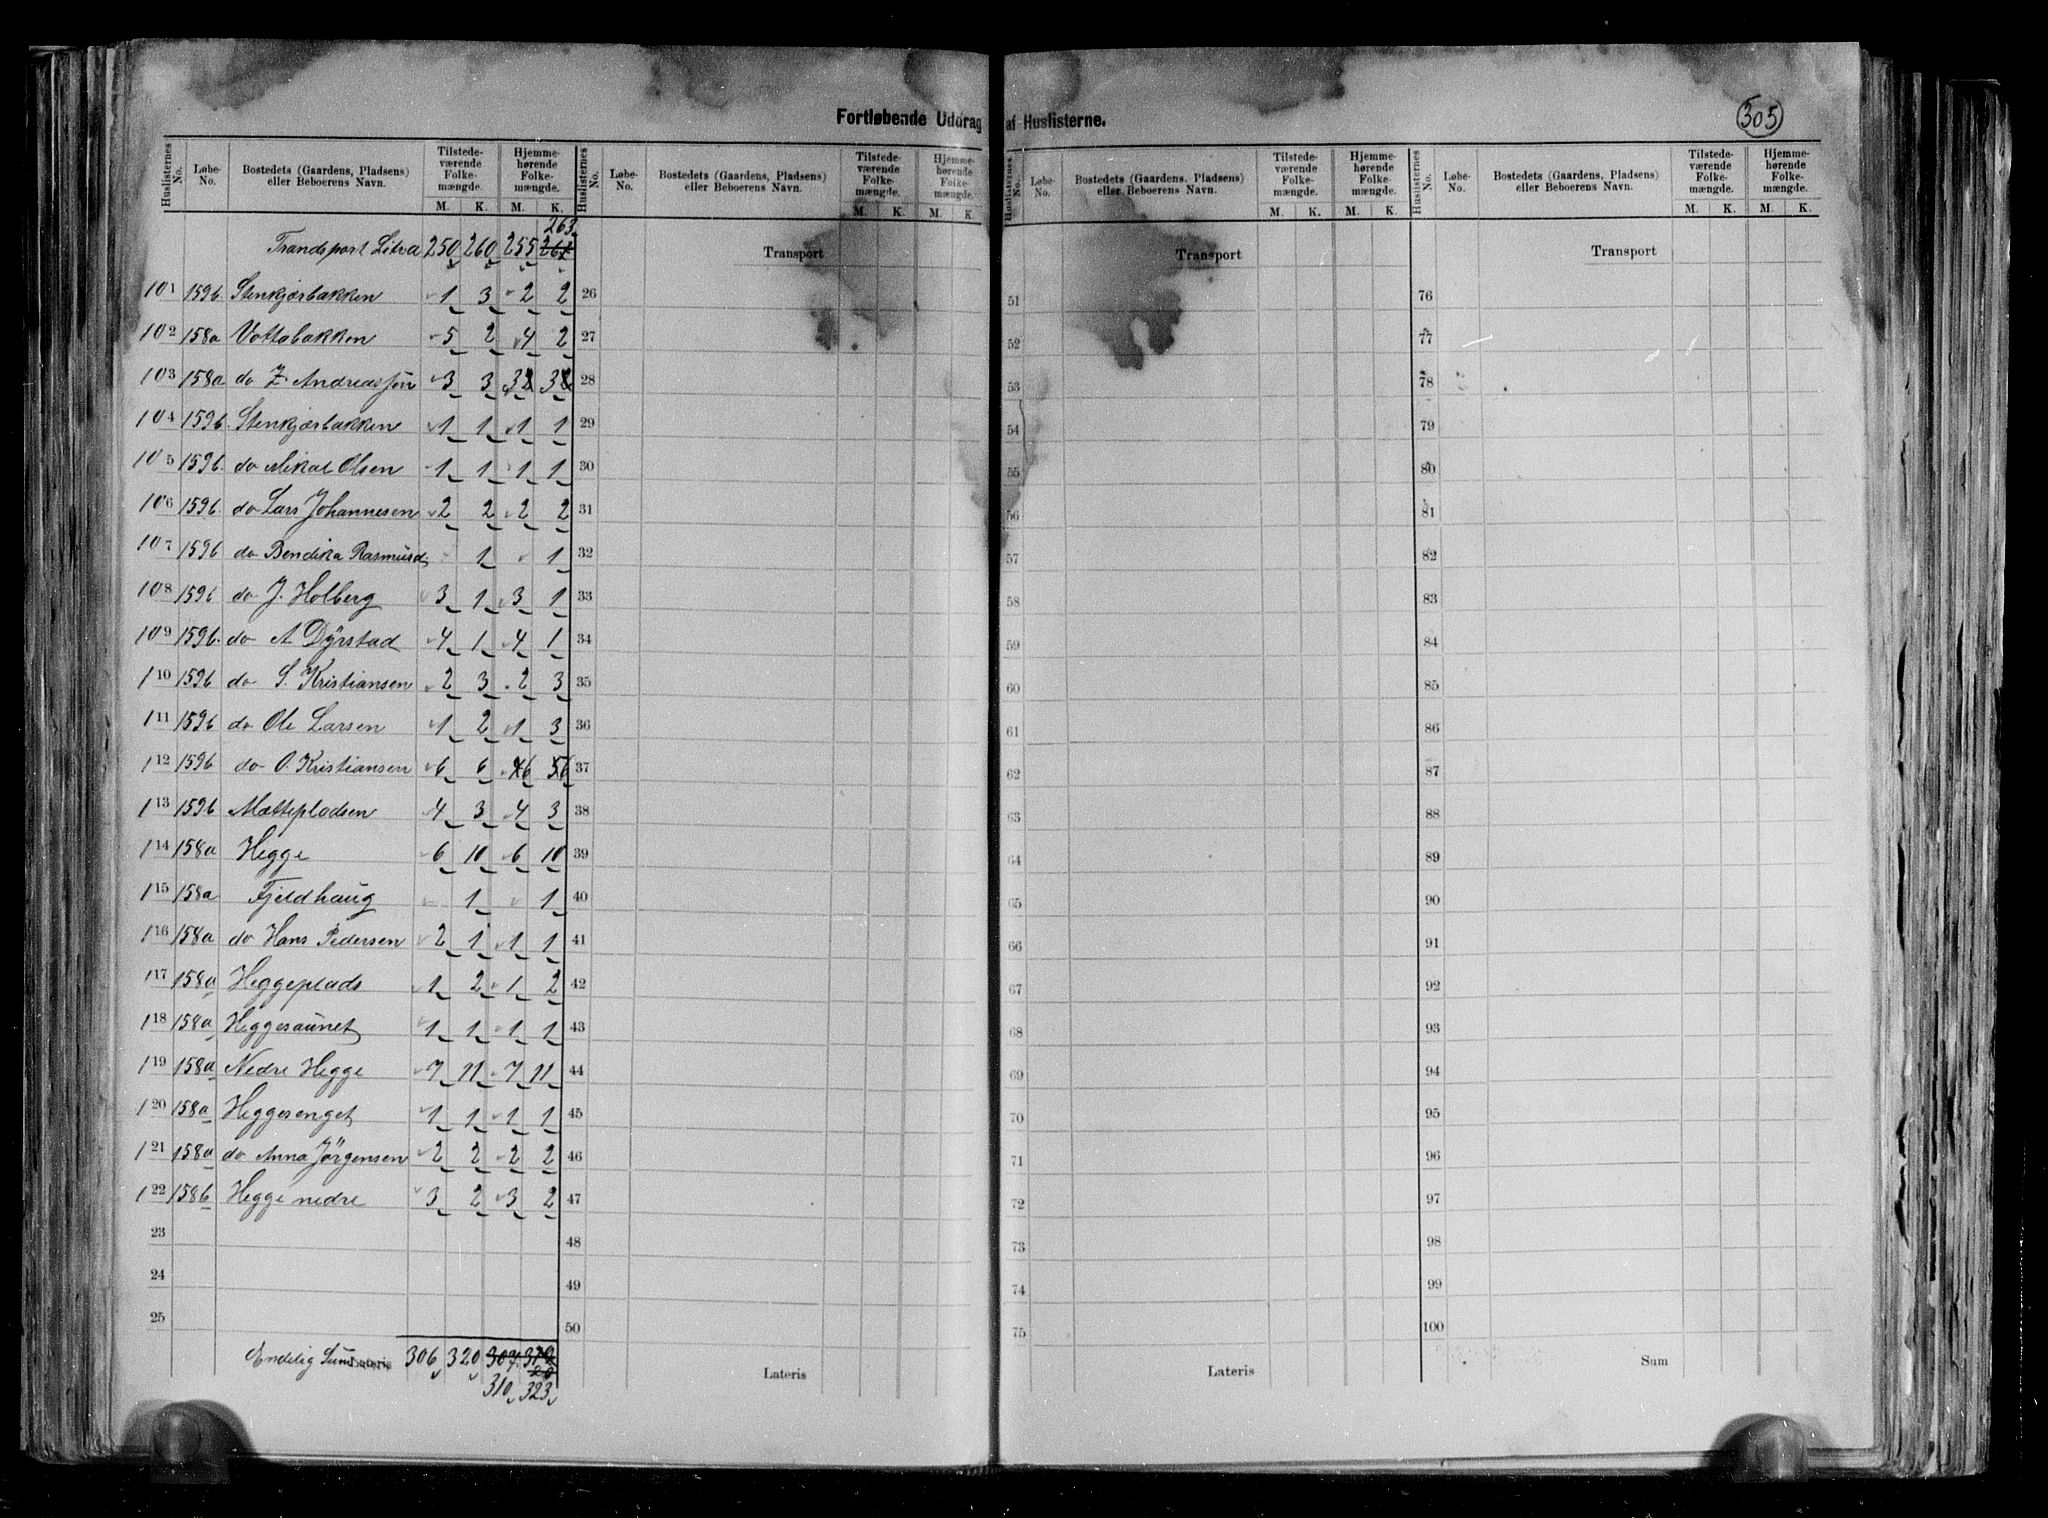 Fortløbende Uddrag af Huslisterne.
305
Huslisternes No. Løbe-No. Bostedets (Gaardens, Pladsens) eller Beboerens Navn. Tilstedeværende Folkemængde. M. K. Hjemmehørende Folkemængde. M. K.
263
Trandsport Litra 250 260 255
101 159b Stenkjærbakken 1 3 2 2
102 158a Vottabakken 5 2 4 2
103 158a do Z. Andreassen 3 3 3 3
104 159b. Stenkjærbakken 1 1 1 1
105 159b. do Mikal Olsen 1 1 1 1
106 159b. do Lars Johannesen 2 2 2 2
107 159b do Bendika Rasmusd. 1 1
108 159b do J. Holberg 3 1 3 1
109 159b. do A Dÿrstad 4 1 4 1
110 159b do S. Kristiansen 2 3 2 3
111 159b do Ole Larsen 1 2 1 3
112 159b do O. Kristiansen 6 6 6 6
113 159b Mætteplodsen 4 3 4 3
114 158a Hegge 6 10 6 10
115 158a Fjeldhaug 1 1
116 158a do Hans Pedersen 2 1 1 1
117 158a Heggeplads 1 2 1 2
118 158a Heggesaunet 1 1 1 1
119 158a Nedre Hegge 7 11 7 11
120 158a Heggesenget 1 1 1 1
121 158a do Anna Jörgensen 2 2 2 2
122 158b Hegge nedre 3 2 3 2
23
24
25
Endelig Sum Lateris 306 320 307
310 323
Huslisternes No. Løbe-No. Bostedets (Gaardens, Pladsens) eller Beboerens Navn. Tilstedeværende Folkemængde. M. K. Hjemmehørende Folkemængde. M. K.
Transport
26
27
28
29
30
31
32
33
34
35
36
37
38
39
40
41
42
43
44
45
46
47
48
49
50
Lateris
Huslisternes No. Løbe-No. Bostedets (Gaardens, Pladsens) eller Beboerens Navn. Tilstedeværende Folkemængde. M. K. Hjemmehørende Folkemængde. M. K.
Transport
51
52
53
54
55
56
57
58
59
60
61
62
63
64
65
66
67
68
69
70
71
72
73
74
75
Lateris
Huslisternes No. Løbe-No. Bostedets (Gaardens, Pladsens) eller Beboerens Navn. Tilstedeværende Folkemængde. M. K. Hjemmehørende Folkemængde. M. K.
Transport
76
77
78
79
80
81
82
83
84
85
86
87
88
89
90
91
92
93
94
95
96
97
98
99
100
Sum